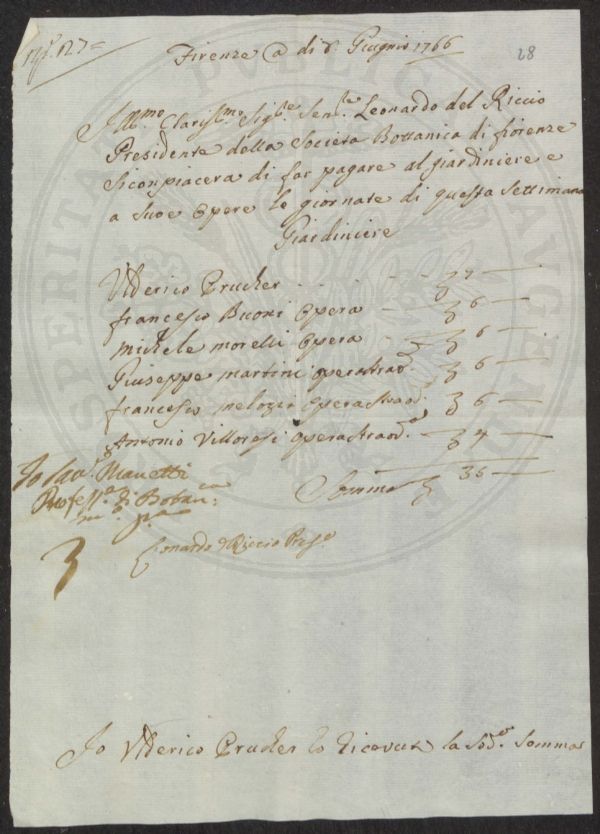 N.° 127=
Firenze @ di 6. Giugnio 1766
28
Ill.mo Claris.mo Sig.re Sen.re Leonardo del Riccio
Presidente della Società Bottanica di fiorenze
Siconpiacera di far pagare al giardiniere e
a suoe Opere le giornate di questa Settimana
Giardiniere
Ulderico Prucher - - - 7 —
francesco Buoni Opera - 6 —
michele morelli Opera - 6 —
Giuseppe martini operastraod. 6 —
francesco melozzi operastraod. 6 —
Antonio Villoresi operastraod. 4 —
Somma 35 —
Io Sav. Manetti
Profess. di Botan.ca
m.o p.a
Leonardo del Riccio Pres.e
Io Ulderico Prucher ho ricevuto la sod.a Somma
SPERITAS PUBLICA AUGENTUR